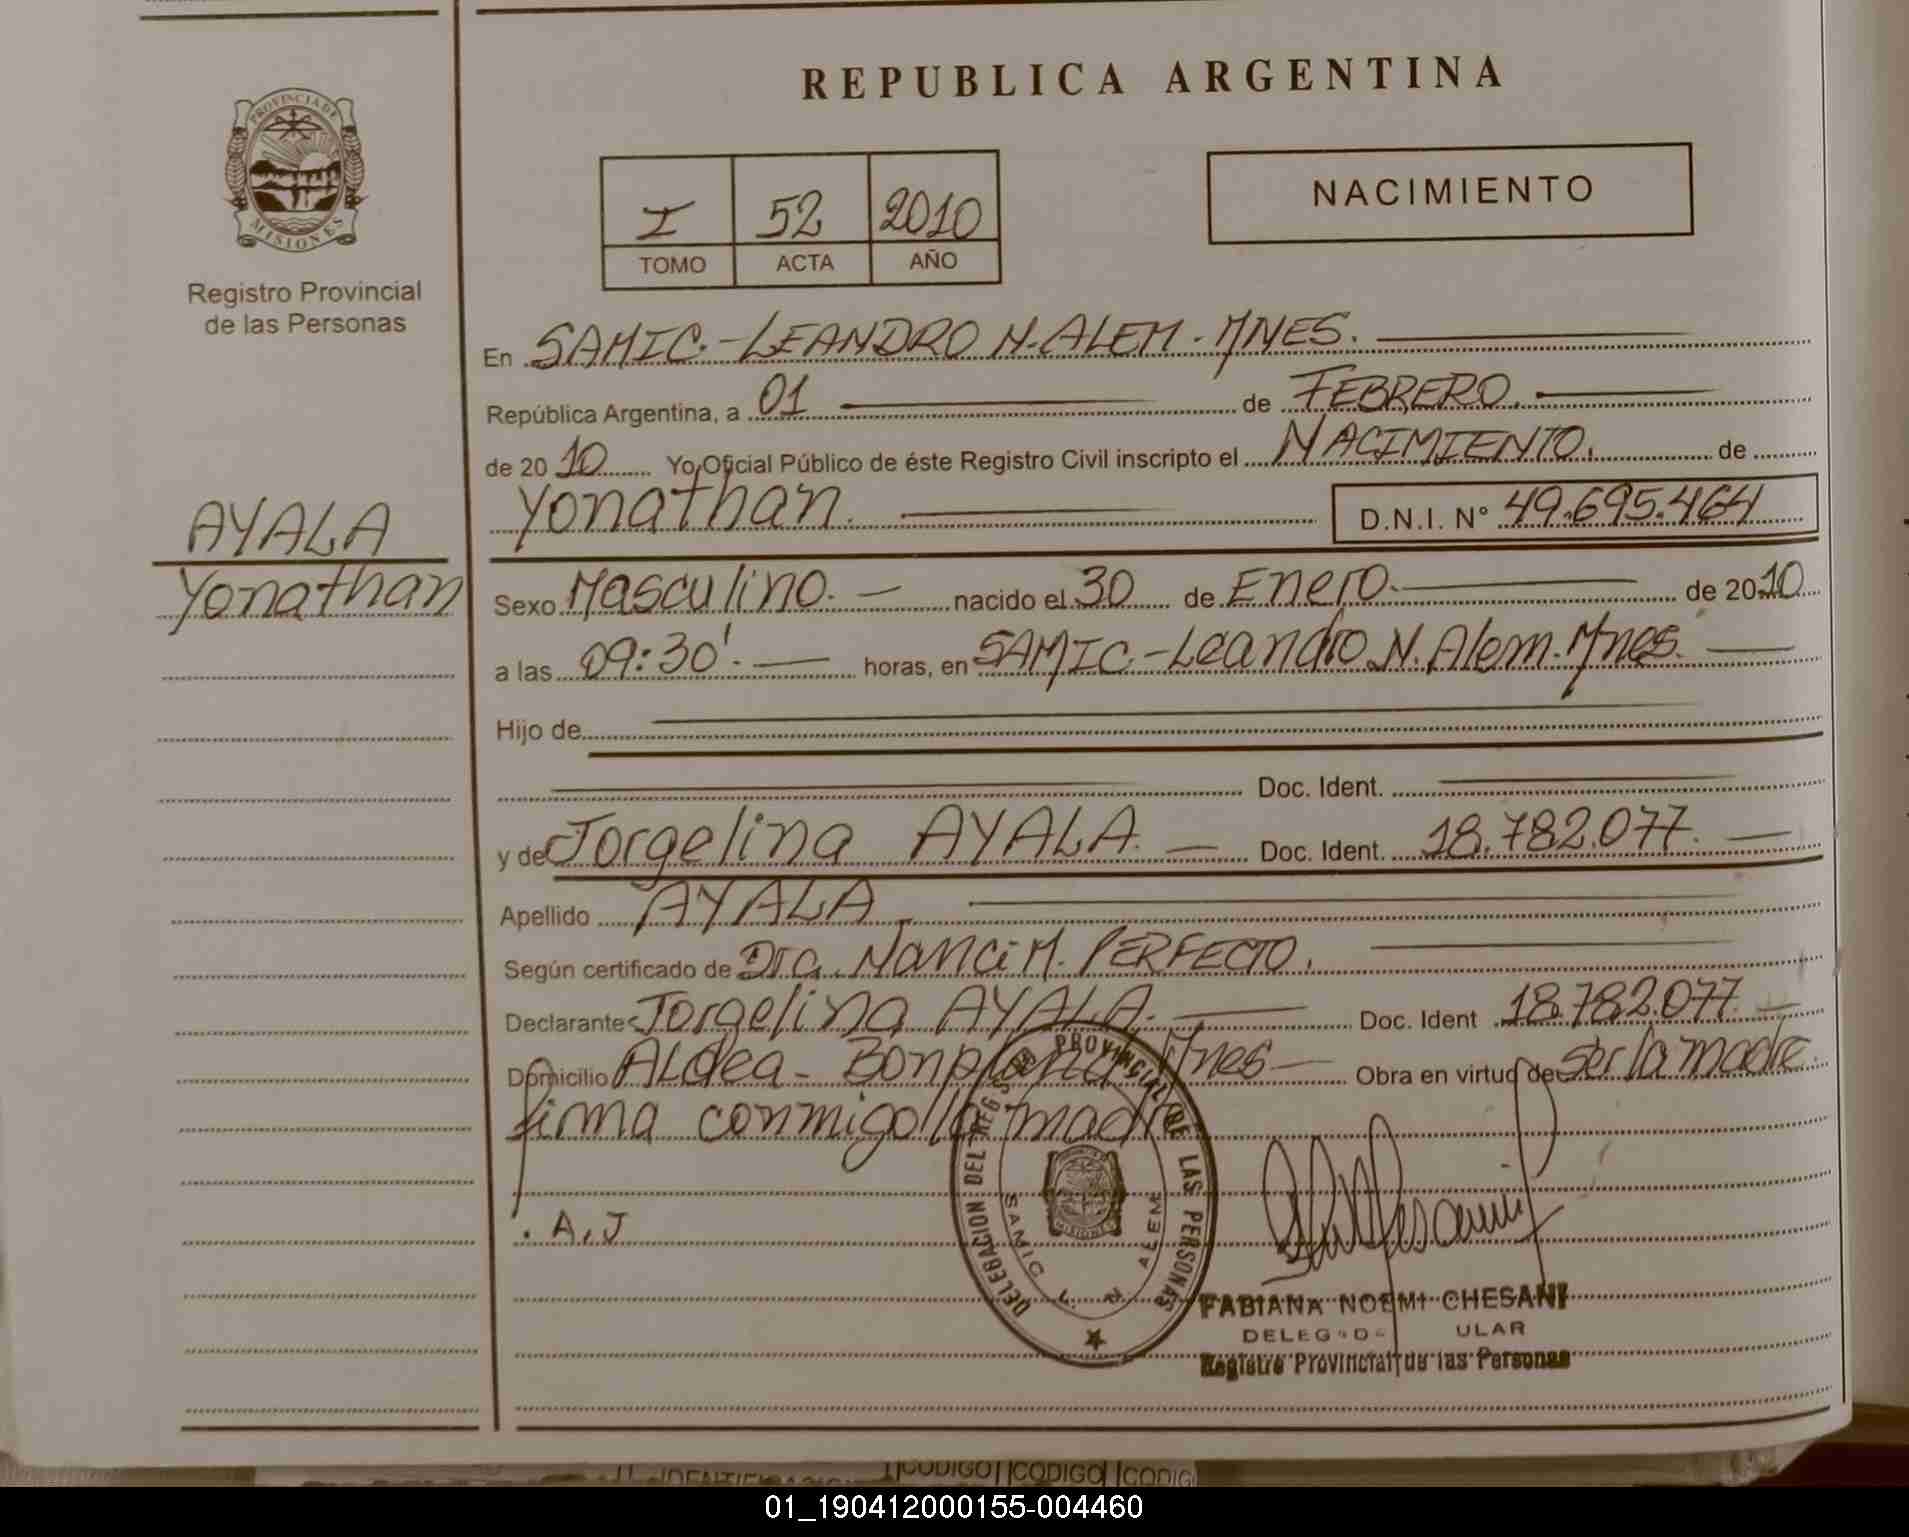 REPUBLICA ARGENTINA
PROVINCIA DE
MISIONES
Registro Provincial
de las Personas
I 52 2010
TOMO ACTA AÑO
NACIMIENTO
En SAMIC.-LEANDRO N. ALEM - MNES.
República Argentina, a 01 de FEBRERO.
de 2010 Yo, Oficial Público de éste Registro Civil inscripto el NACIMIENTO. de
Yonathan. D.N.I. N° 49.695.464
AYALA
Yonathan
Sexo Masculino. nacido el 30 de Enero. de 2010
a las 09:30'. horas, en SAMIC.-Leandro N. Alem. Mnes.
Hijo de
Doc. Ident.
y de Jorgelina AYALA. Doc. Ident. 18.782.077.
Apellido AYALA
Según certificado de Dra. Nanci M. PERFECTO.
Declarante Jorgelina AYALA. Doc. Ident 18.782.077.
Domicilio ALdea - Bonpland Mnes Obra en virtud de ser la madre.
firma conmigo la madre
. A, J
DELEGACION DEL REG. PROVINCIAL DE LAS PERSONAS
SAMIC L. N. ALEM
FABIANA NOEMI CHESANI
ULAR
Registro Provincial de las Personas
CODIGO CODIGO CODIG
01_190412000155-004460